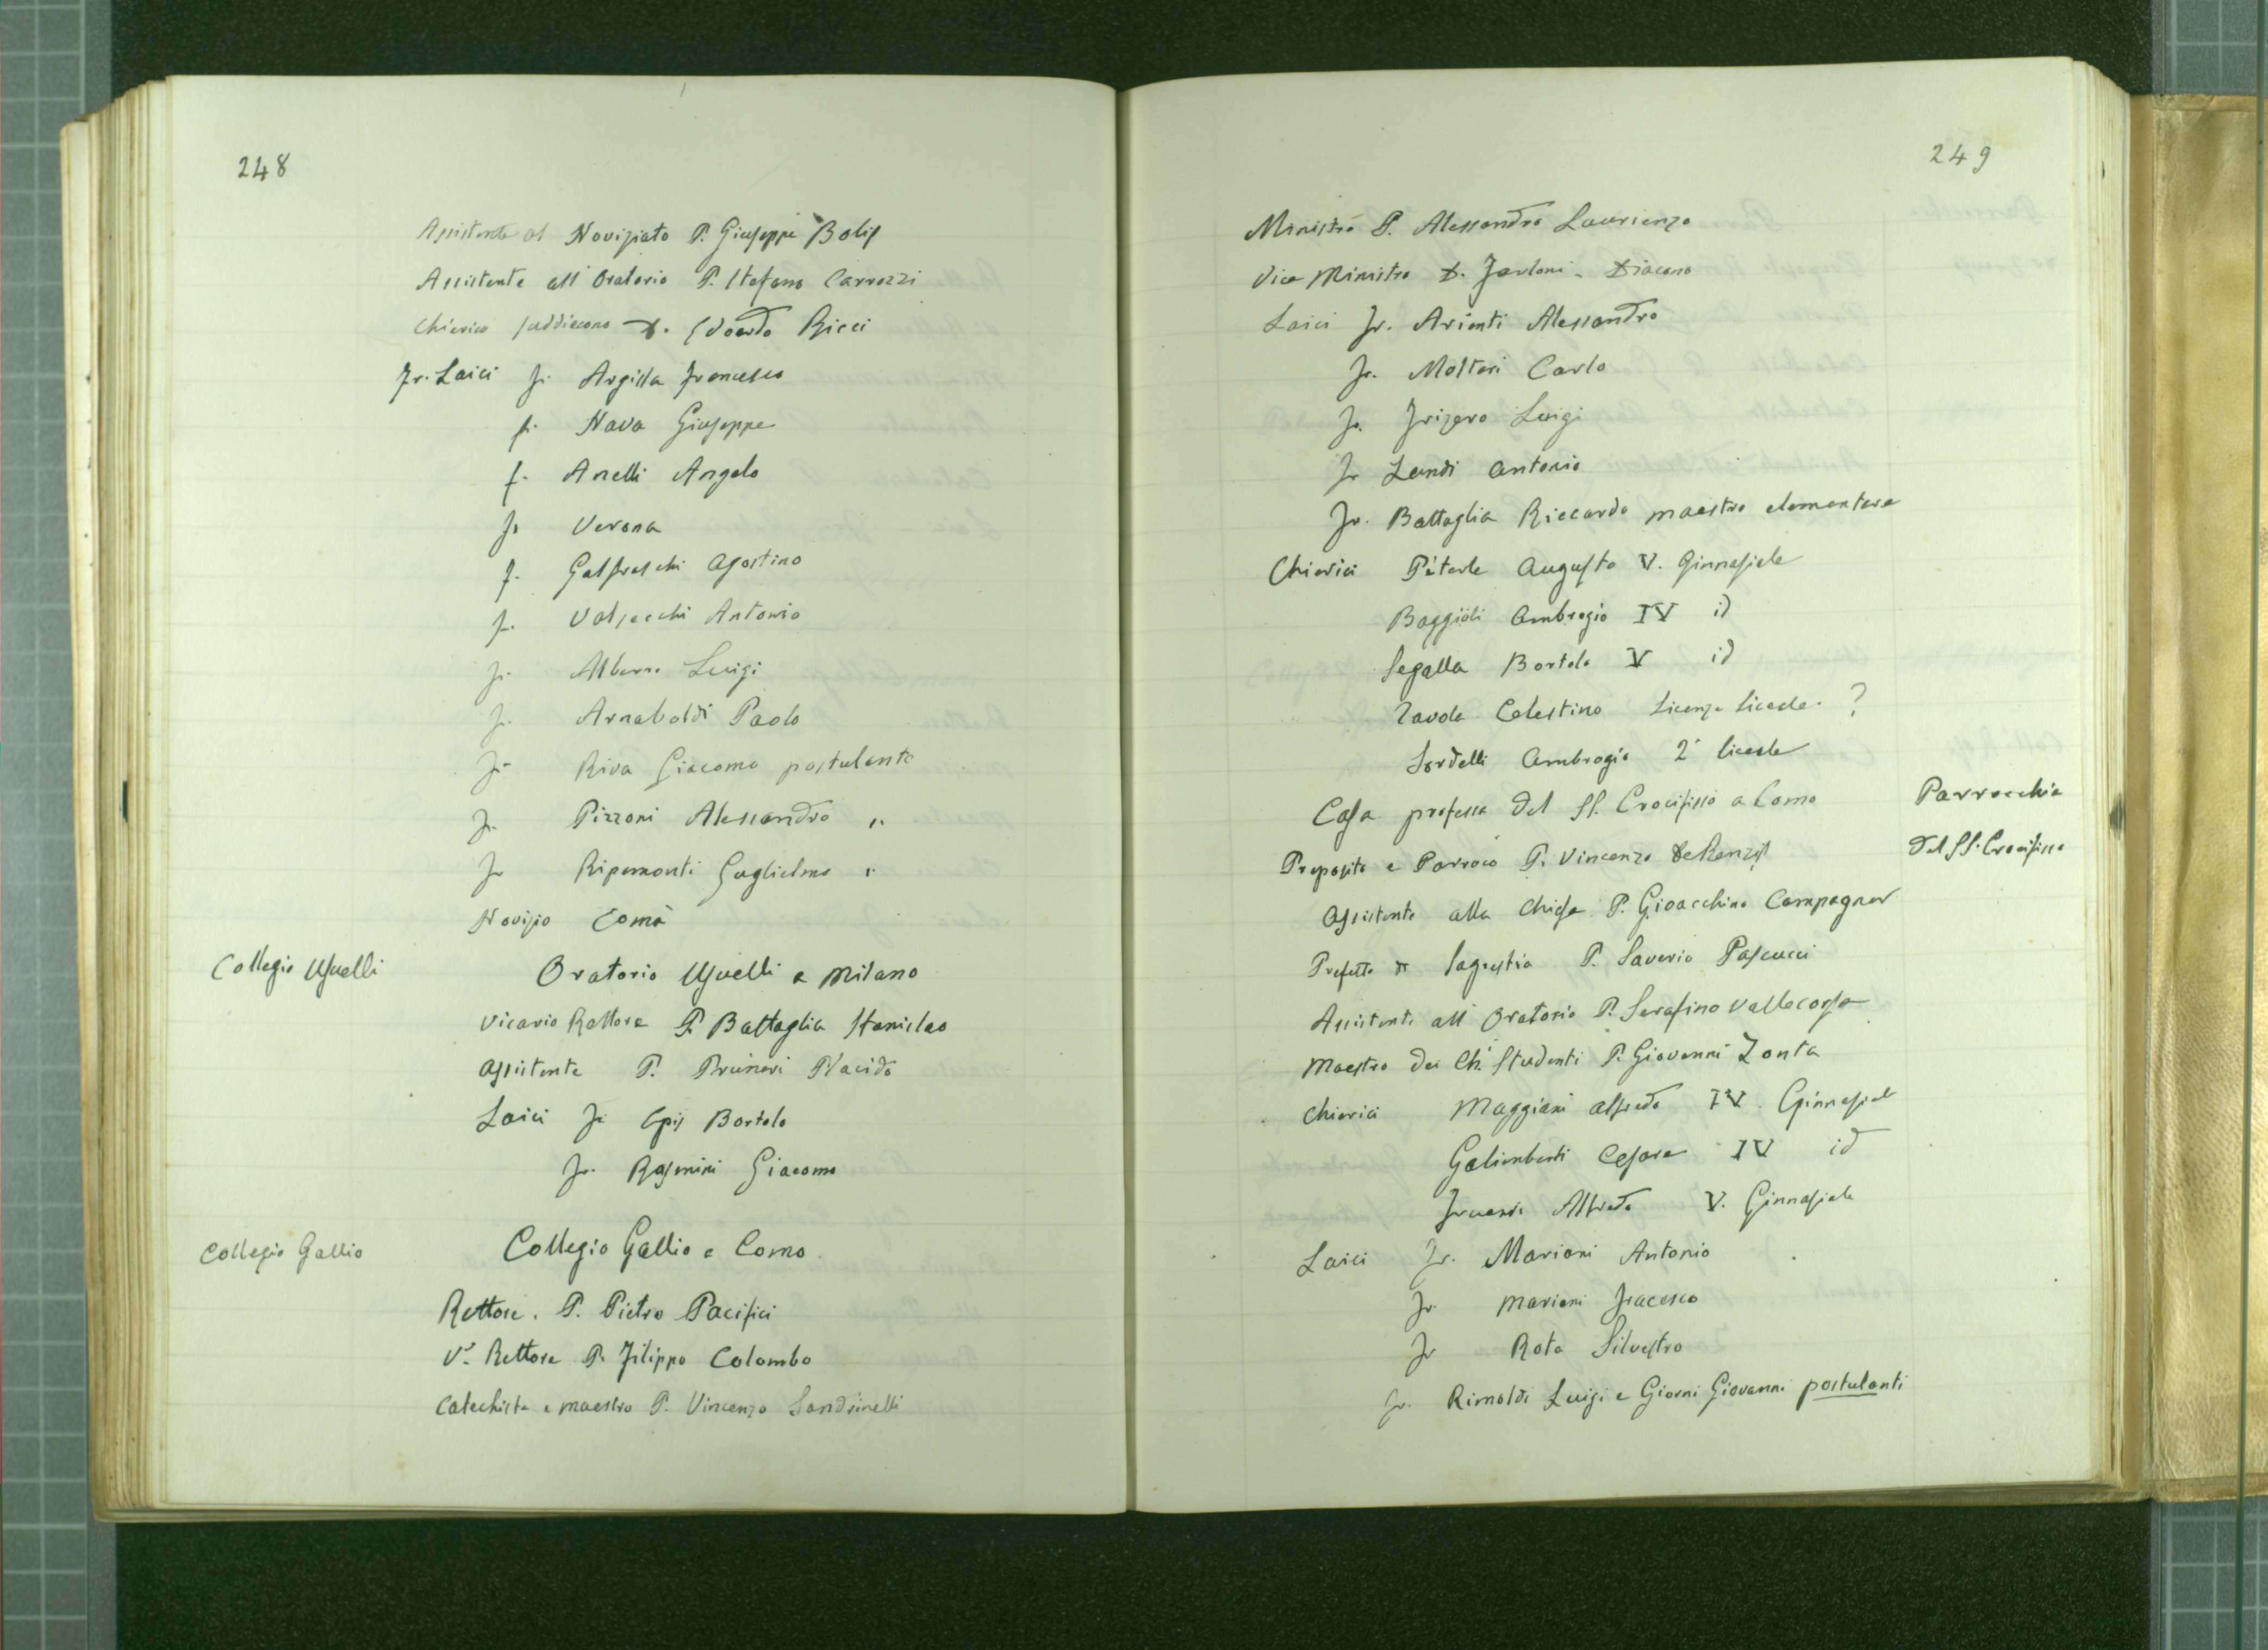 248
Assistente al Noviziato P. Giuseppe Bolis
Assistente all' Oratorio P. Stefano Carrozzi
Chierico suddiacono D. Edoardo Ricci
Fr. Laici Fr. Argilla Francesco
fr. Nava Giuseppe
f. Anelli Angelo
Fr Verona
f. Galfraschi Agostino
fr. Valsecchi Antonio
fr. Luigi
fr. Arnaboldi Paolo
Fr Riva Giacomo postulante
Fr. Pizzoni Alessandro "
Fr Ripamonti Guglielmo "
Novizio Comà
Collegio Usuelli
Oratorio Usuelli a Milano
Vicario Rettore P. Battaglia Stanislao
Assistente P. Prineri Placido
Laici Fr Epis Bortolo
Fr. Rosmini Giacomo
Collegio Gallio
Collegio Gallio a Como
Rettore. P. Pietro Pacifici
V. Rettore P. Filippo Colombo
Catechista e maestro P. Vincenzo Sandrinelli
249
Ministro P. Alessandro Laurienzo
Vice Ministro D. Zortoni - Diacono
Laici Fr. Arienti Alessandro
Fr. Molteri Carlo
Fr. Frizero Luigi
Fr Landi Antonio
Fr. Battaglia Riccardo maestro elementare
Chierici Peterle Augusto V. Ginnasiale
Baggioli Ambrogio IV id
Segalla Bortolo V id
Tavola Celestino Licenza liceale. ?
Sordelli Ambrogio 2ª liceale
Casa professa del SS. Crocifisso a Como
Parrocchia
del SS. Crocifisso
Preposito e Parroco P. Vincenzo DeRenzis
Assistente alla Chiesa P. Gioacchino Campagner
Prefetto di Sagrestia P. Saverio Pascucci
Assistente all' Oratorio P. Serafino Vallecorsa
Maestro dei Ch. Studenti P. Giovanni Zonta
Chierici Maggiani Alfredo IV. Ginnasiale
Galimberti Cesare IV id
Alfredo V. Ginnasiale
Laici Fr. Mariani Antonio
Fr. Mariani Fracesco
Fr Rota Silvestro
Fr. Rimoldi Luigi e Giorni Giovanni postulanti